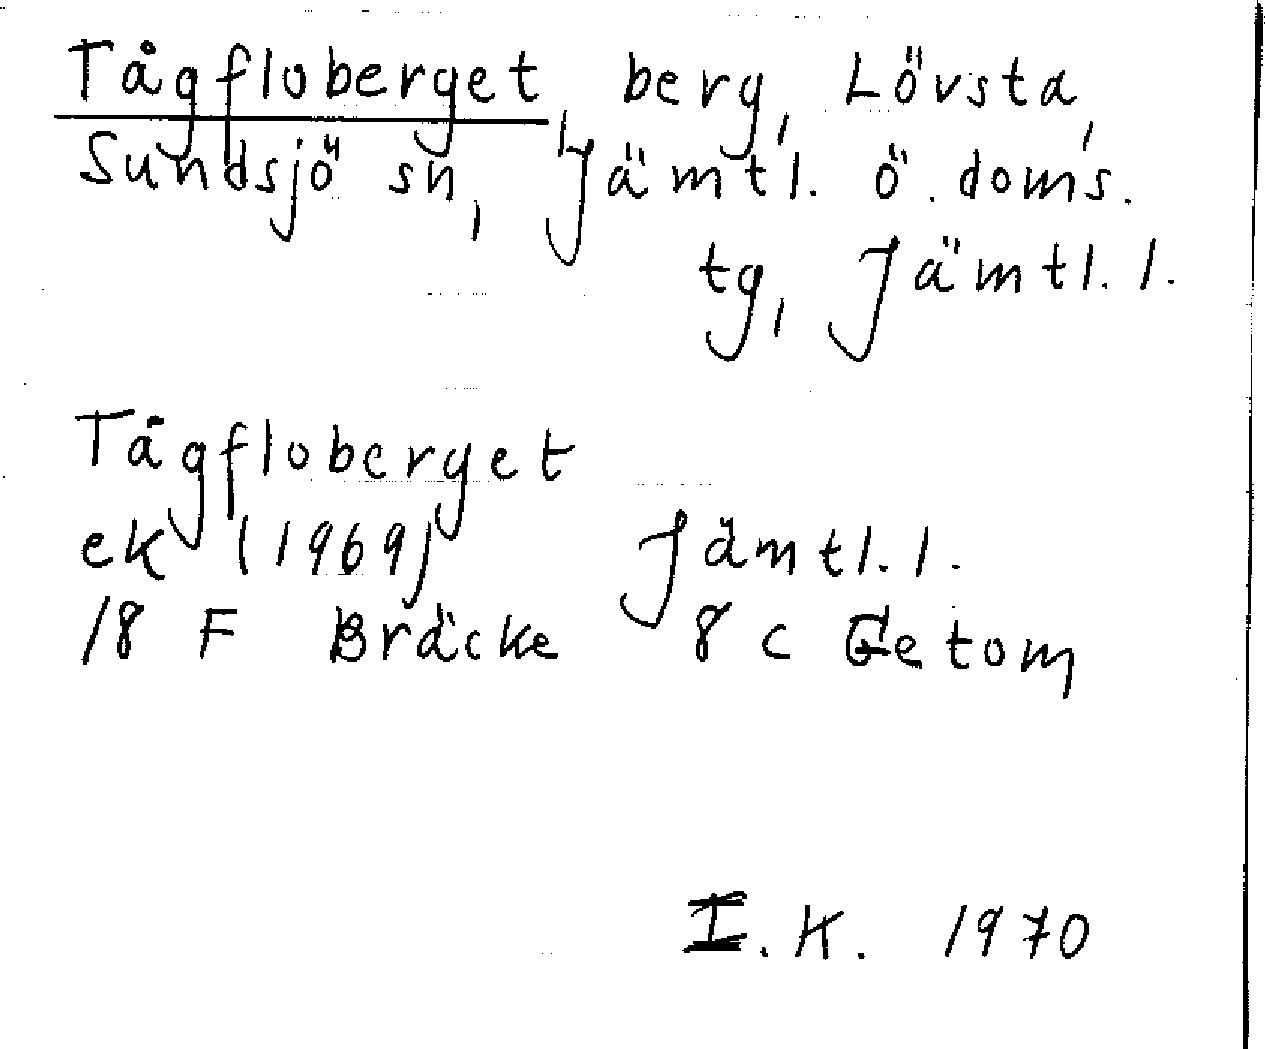 Tågfloberget, berg, Lövsta,
Sundsjö sn, Jämtl. ö. doms.
tg, Jämtl. l.
Tågfloberget
ek (1969) Jämtl. l.
18 F Bräcke 8 c Getom
I. K. 1970